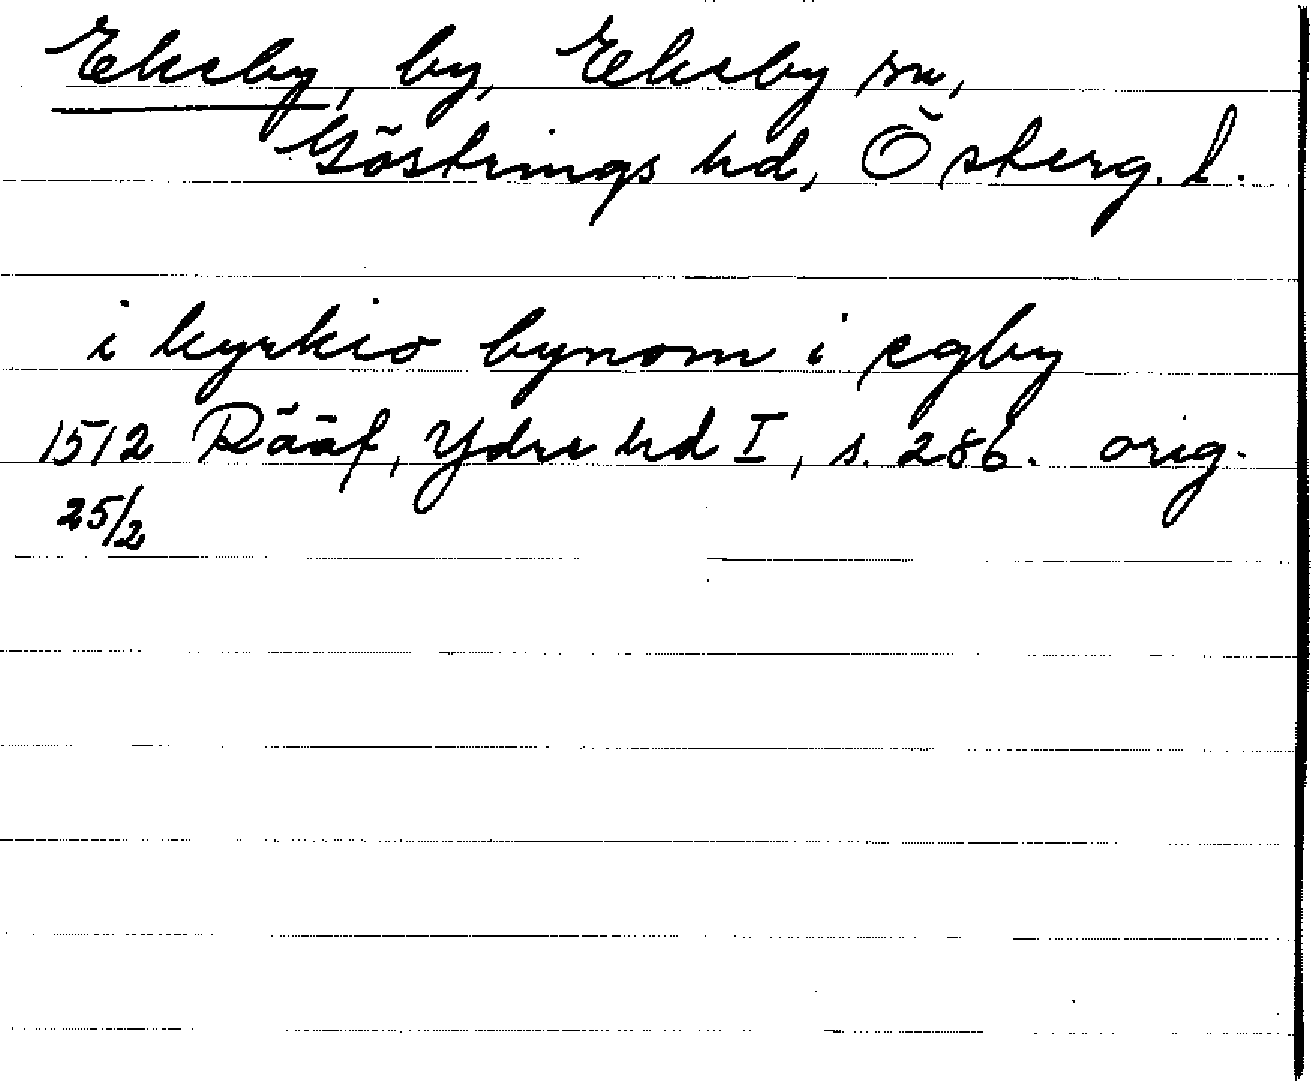 Ekeby, by, Ekeby sn,
Göstrings hd, Österg. l.
i kyrkio bynom i egby
1512 Rääf, Ydre hd I, s. 286. orig.
25/2